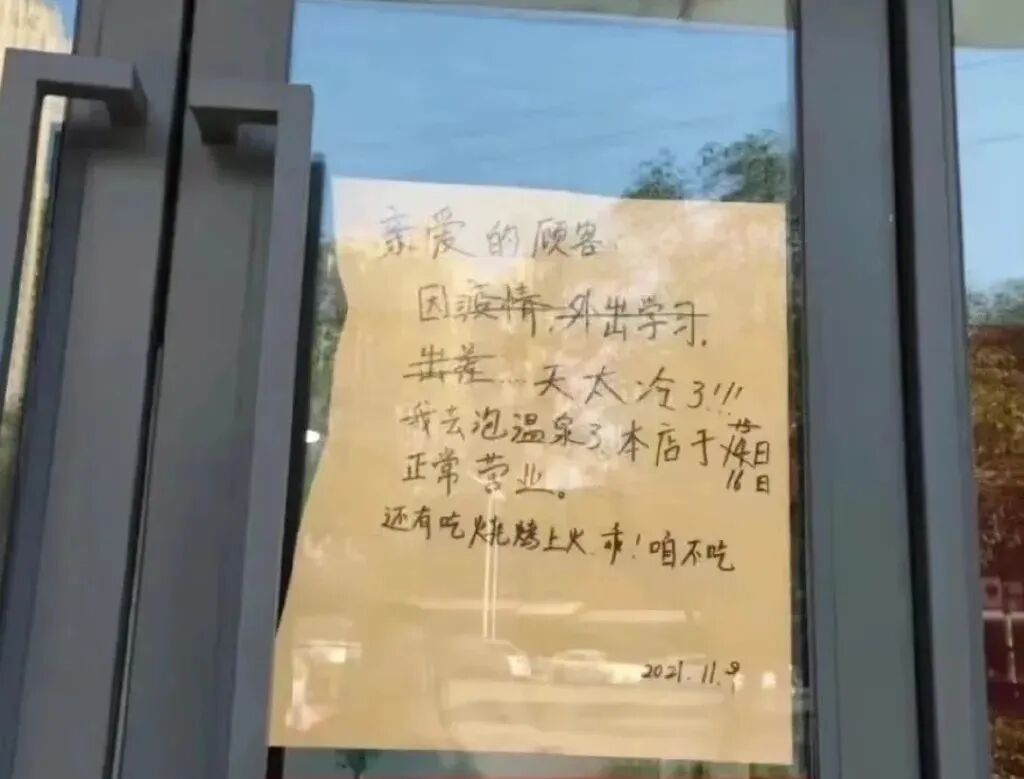 亲爱的顾客：
因疫情，外出学习，
出差...天太冷了!!!
我去泡温泉了，本店于14日
16日
正常营业。
还有吃烧烤上火，乖！咱不吃
2021.11.9